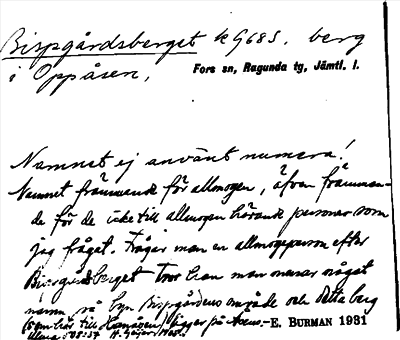 Bispgårdsberget k G68S. berg
i Oppåsen,
Fors sn, Ragunda tg, Jämtl. l.
Namnet ej använt numera!
Namnet främmande för allmogen, äfven främman-
de för de icke till allmogen hörande personer som
jag frågat. Frågar man en allmogeperson efter
Bispgårdsberget tror han man menar något
namn på byn Bispgårdens område och detta berg
(som hör till ) ligger på .–E. BURMAN 1931